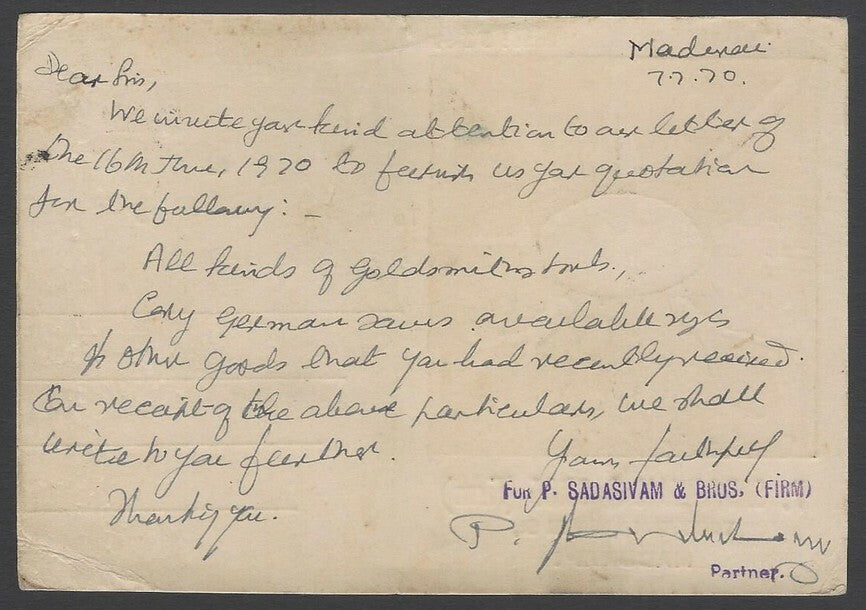 Madurai
7.7.70.
Dear Sirs,
We invite your kind attention to our letter of
the 16th June, 1970 to furnish us your quotation
for the following: -
All kinds of Goldsmiths tools,
German saws available sizes
& other goods that you had recently received.
On receipt of the above particulars, we shall
write to you further.
Yours faithfully
Thanking you.
For P. SADASIVAM & BROS. (FIRM)
P.
Partner.